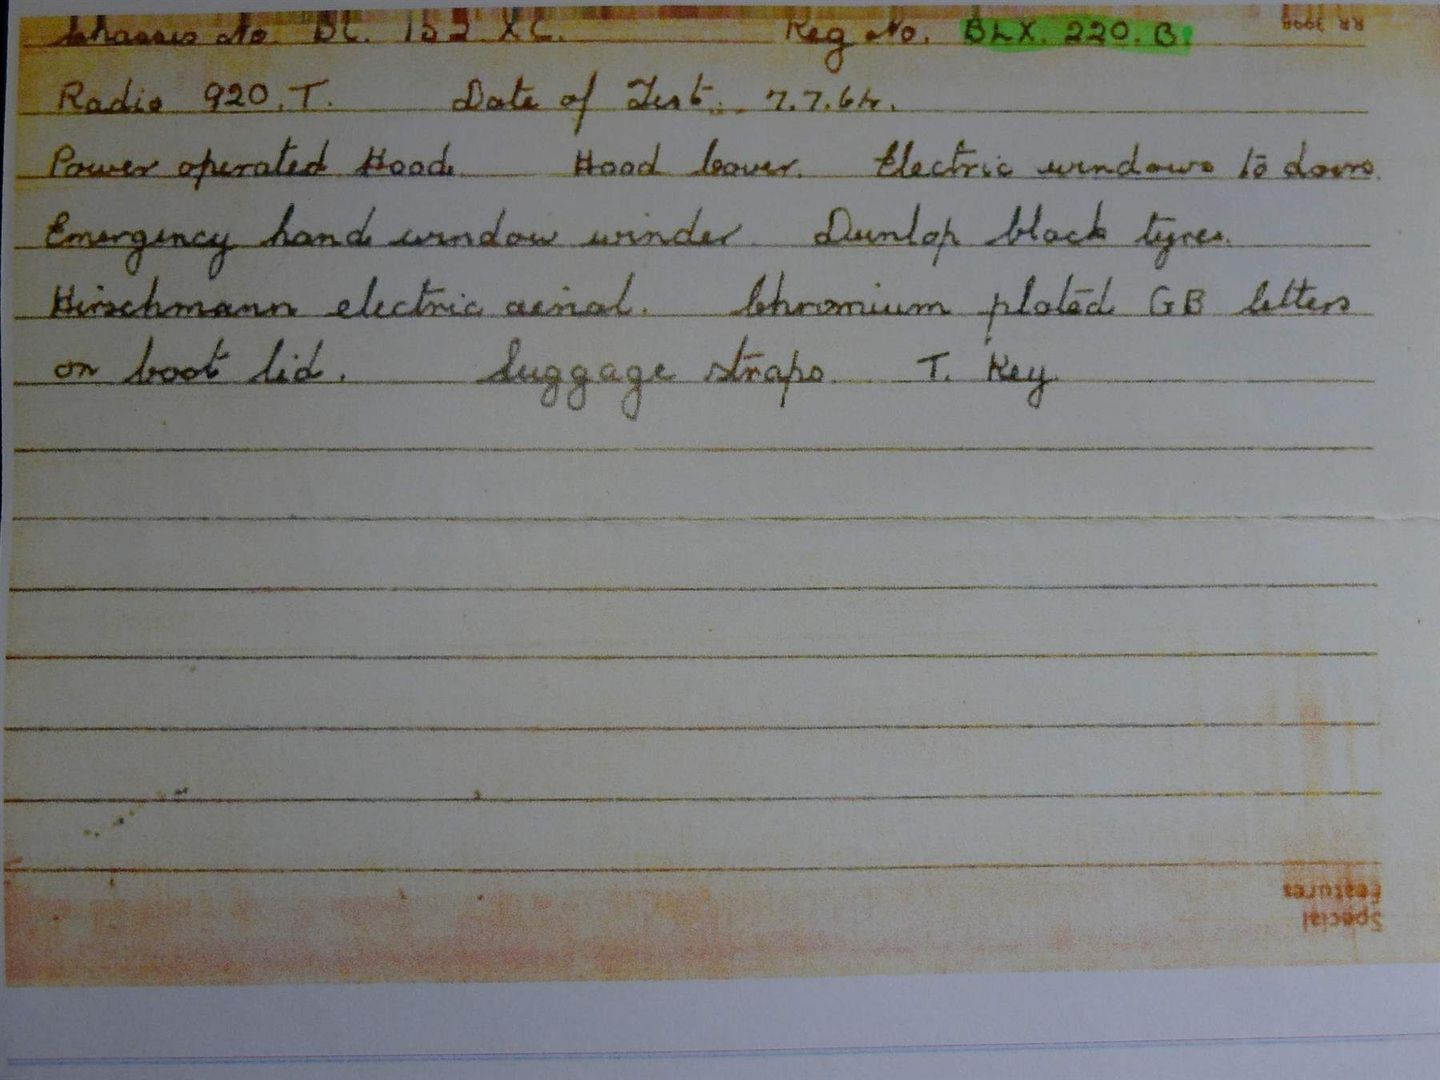 Chassis No. BC. 152 XC. Reg No. BLX. 220. B. RR 3999
Radio 920. T. Date of Test. 7.7.64.
Power operated Hood. Hood Cover. Electric windows to doors.
Emergency hand window winder. Dunlop black tyres.
Hirschmann electric aerial. Chromium plated GB letters
on boot lid. Luggage straps. T. Key.
Special
Features